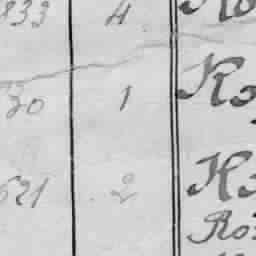 833 4 Ko
30 1 Ko
621 2 Ko
Ro